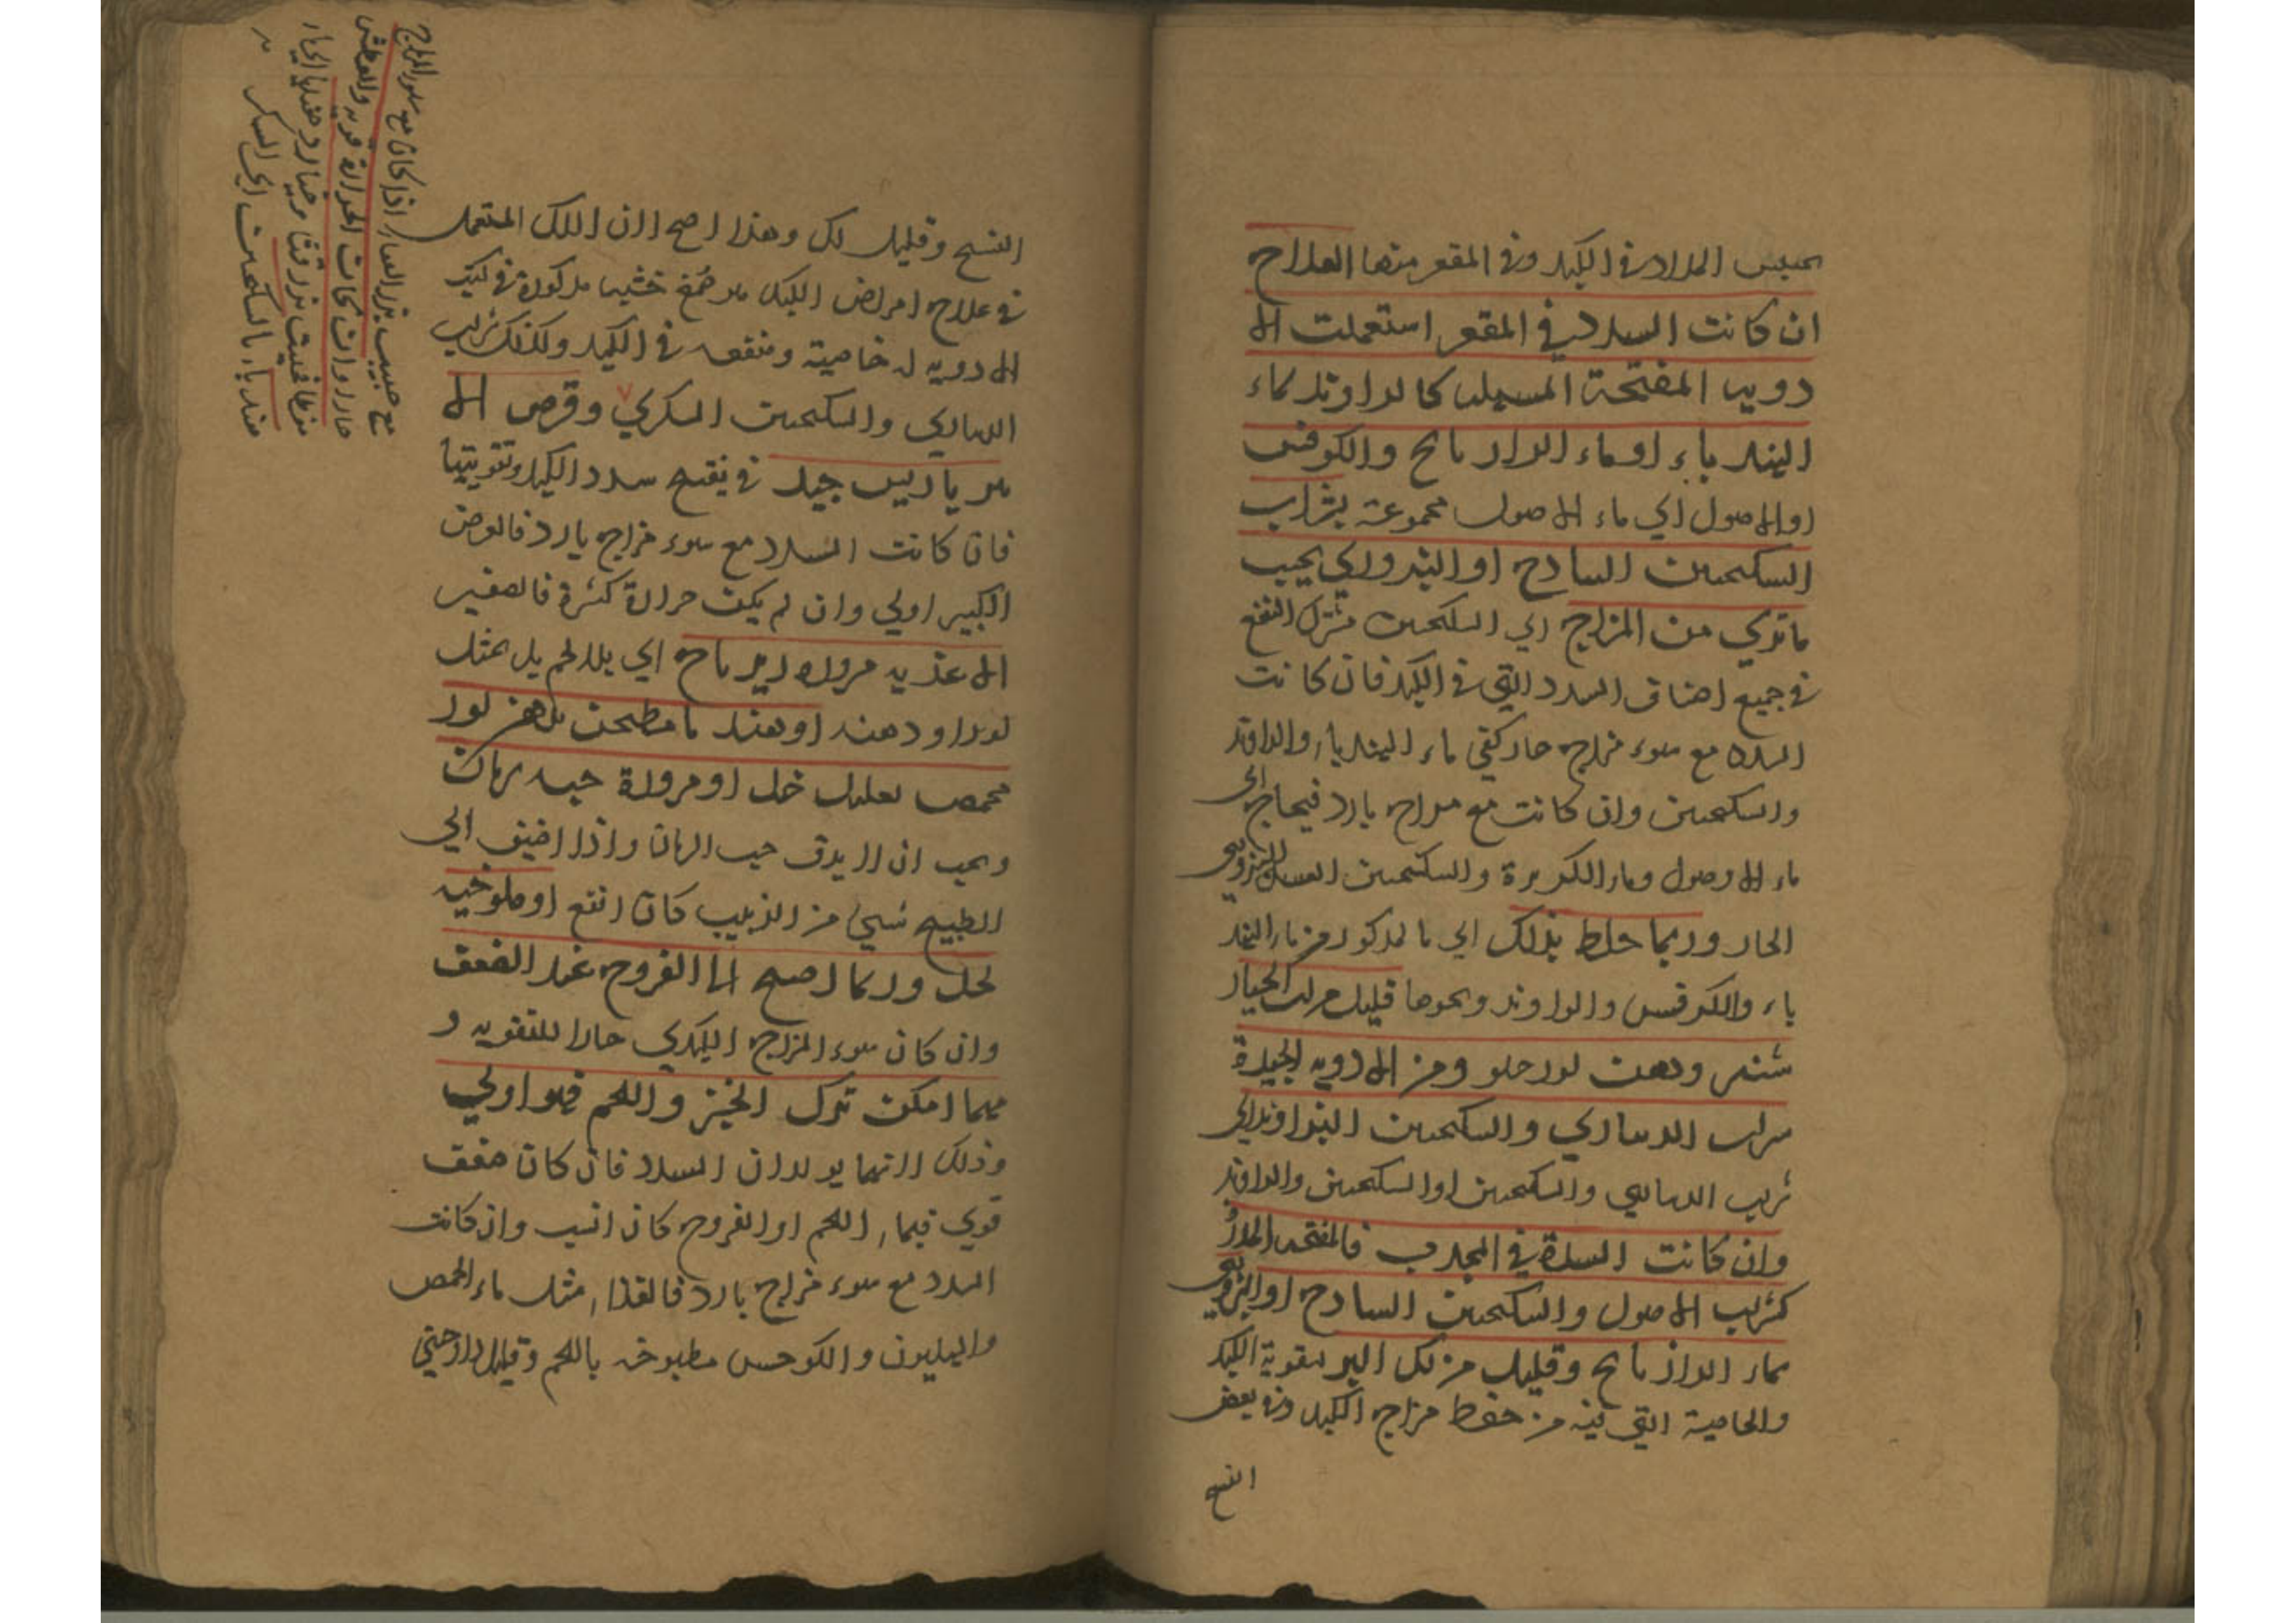 بحسب المدد في الكبد وفي المقعر منها العلاج
ان كانت السدد في المقعر استعملت الا
دويه المفتحة المسهله كالراوند بماء
الهندباء او ماء الرازيانج والكرفس
او الاصول اي ماء الاصول مجموعة بشراب
السكنجبين الساذج او البزوري بحسب
ما تري من المزاج اي السكنجبين مشترك النفع
في جميع اصناف السدد التي في الكبد فان كانت
السدد مع سوء مزاج حار كفي ماء الهندباء والراوند
والسكنجبين وان كانت مع مزاج بارد فيحتاج الي
ماء الاصول وماء والسكنجبين العسلي البزوري
الحار وربما خلط بذلك اي بالمذكور من ماء الهند
باء والكرفس والراوند ونحوها قليل من لب الخيار
شنبر ودهن لوز حلو ومن الادويه الجيدة
شراب الديناري والسكنجبين الراوندي اي
شراب الديناري والسكنجبين او السكنجبين والراوند
وان كانت السدة في المحدب فالمفتحه المدرة
كشراب الاصول والسكنجبين الساذج او البزوري
بماء الرازيانج وقليل من لك اليسر لتقوية الكبد
والخاصية التي فيه من حفظ مزاج الكبد وفي بعض
النسخ
النسخ وقليل لك وهذا اصح لان اللك المستعمل
في علاج امراض الكبد هو صمغ خشب مذكورة في كتب
الادويه له خاصية ومنفعه في الكبد وكذلك شراب
الديناري والسكنجبين السكري وقرص الا
مبر باريس جيد في تفتيح سدد الكبد وتقويتها
فان كانت السدد مع سوء مزاج بارد فالقرص
الكبير اولي وان لم يكن حرارة كثيرة فالصغير
الاغذيه مزوره زيرباج اي بلا لحم بل بمثل
لوز او دهنه او هندبا مطجن بدهن لوز
محمص بقليل خل او مزورة حب رمان
ويجب ان لا يدق حب الرمان واذا اضيف الي
الطبيخ شيئ من الزبيب كان انفع او ملوخيه
بخل وربما اصبح الي الفروج عند الضعف
وان كان سوء المزاج الكبدي حارا للتقويه و
مهما امكن ترك الخبز واللحم فهو اولي
وذلك لانهما يولدان السدد فان كان ضعف
قوي فبماء اللحم او الفروج كان انسب وان كانت
السدد مع سوء مزاج بارد فالغذاء مثل ماء الحمص
والهليون والكرفس مطبوخه باللحم وقليل دارصيني
اذا كان مع سوء المزاج
حار وان كانت الحرارة قويه والعطش
هندباء بالسكنجبين السكر